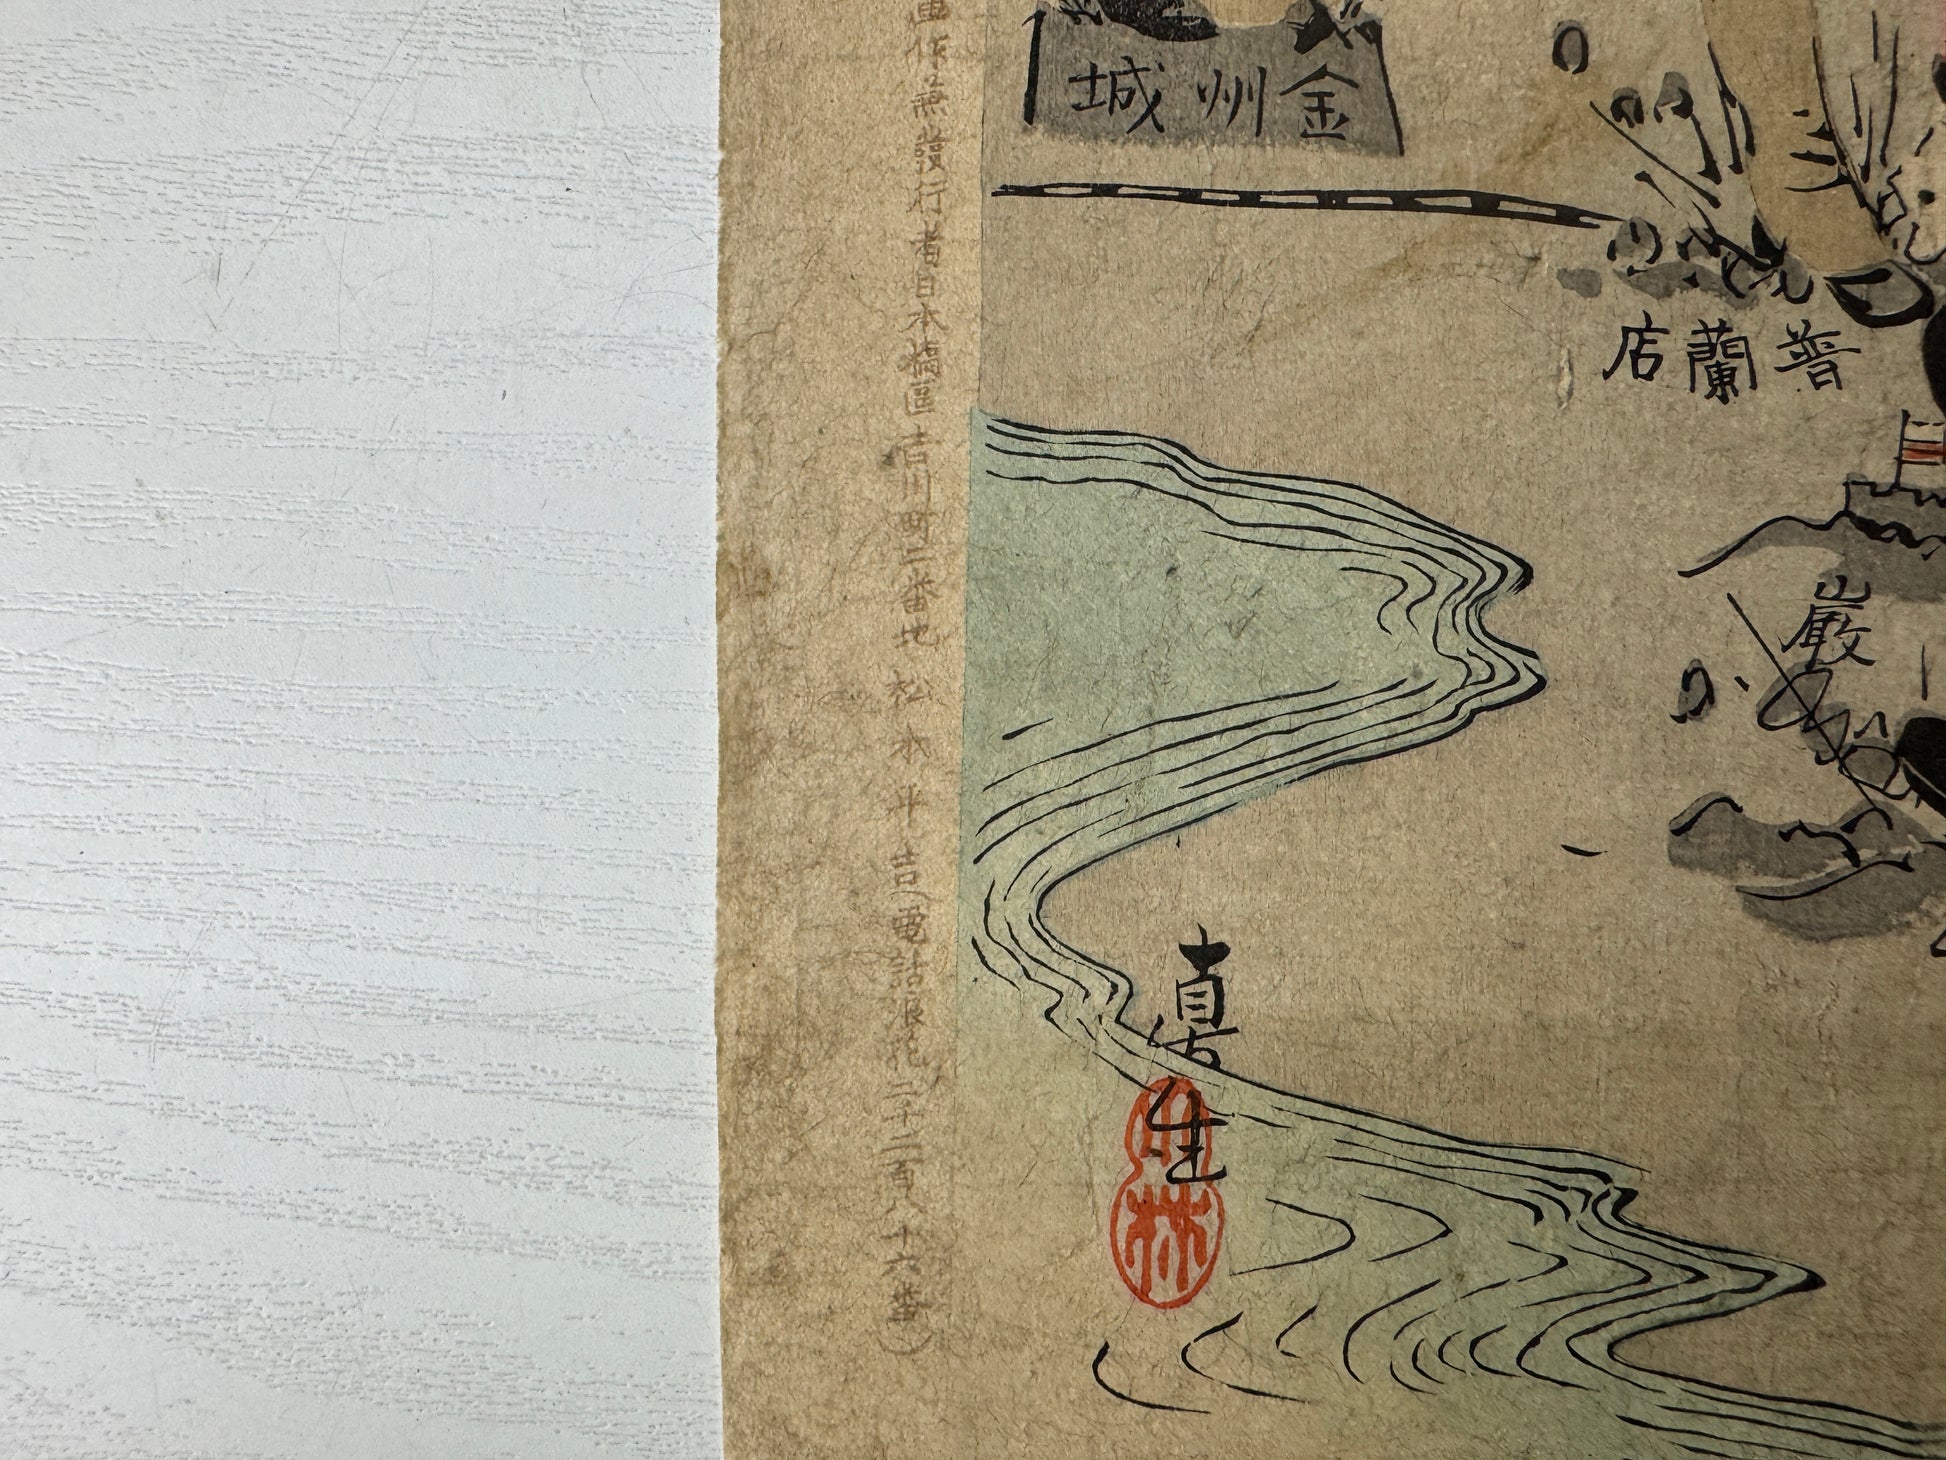 金州城
普蘭店
巌
真生
小林
画作兼發行者日本橋區吉川町二番地 松木平吉(電話浪花二千二百八十六番)